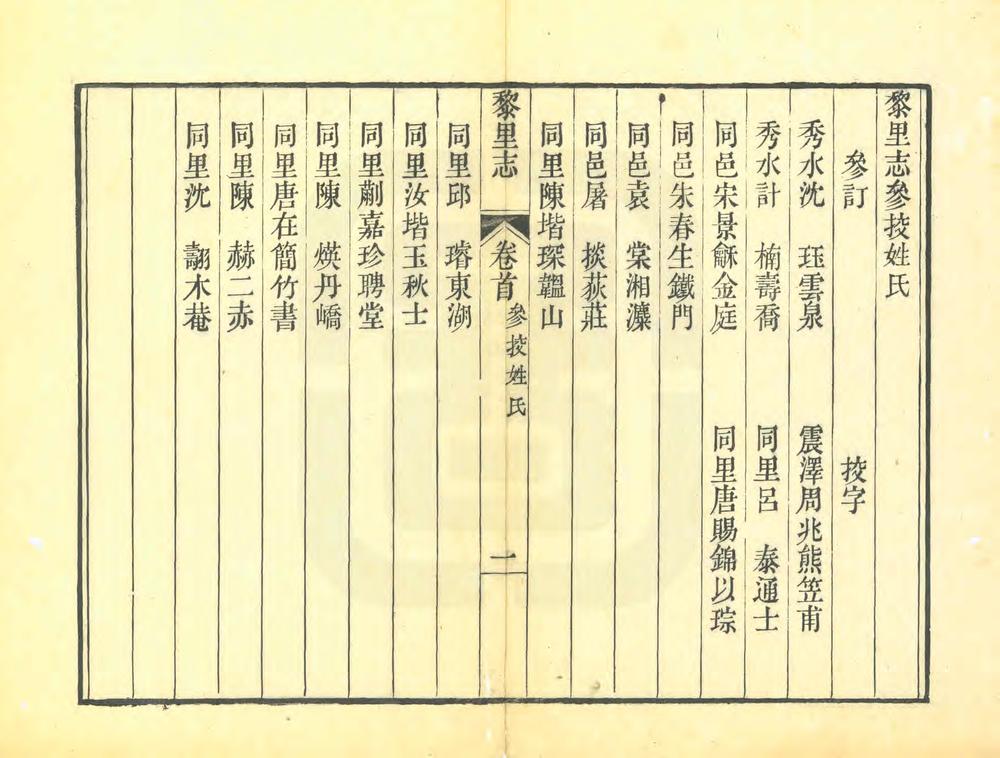 黎里志參挍姓氏
參訂　挍字
秀水沈　珏雲泉　震澤周兆熊笠甫
秀水計　楠壽喬　同里呂　泰通士
同邑宋景龢金庭　同里唐賜錦以琮
同邑朱春生鐵門
同邑袁　棠湘湶
同邑屠　掞荻莊
同里陳堦琛韞山
黎里志　卷首　參挍姓氏　一
同里邱　璿東湖
同里汝堦玉秋士
同里蒯嘉珍聘堂
同里陳　煐丹嶠
同里唐在簡竹書
同里陳　赫二赤
同里沈　翿木菴